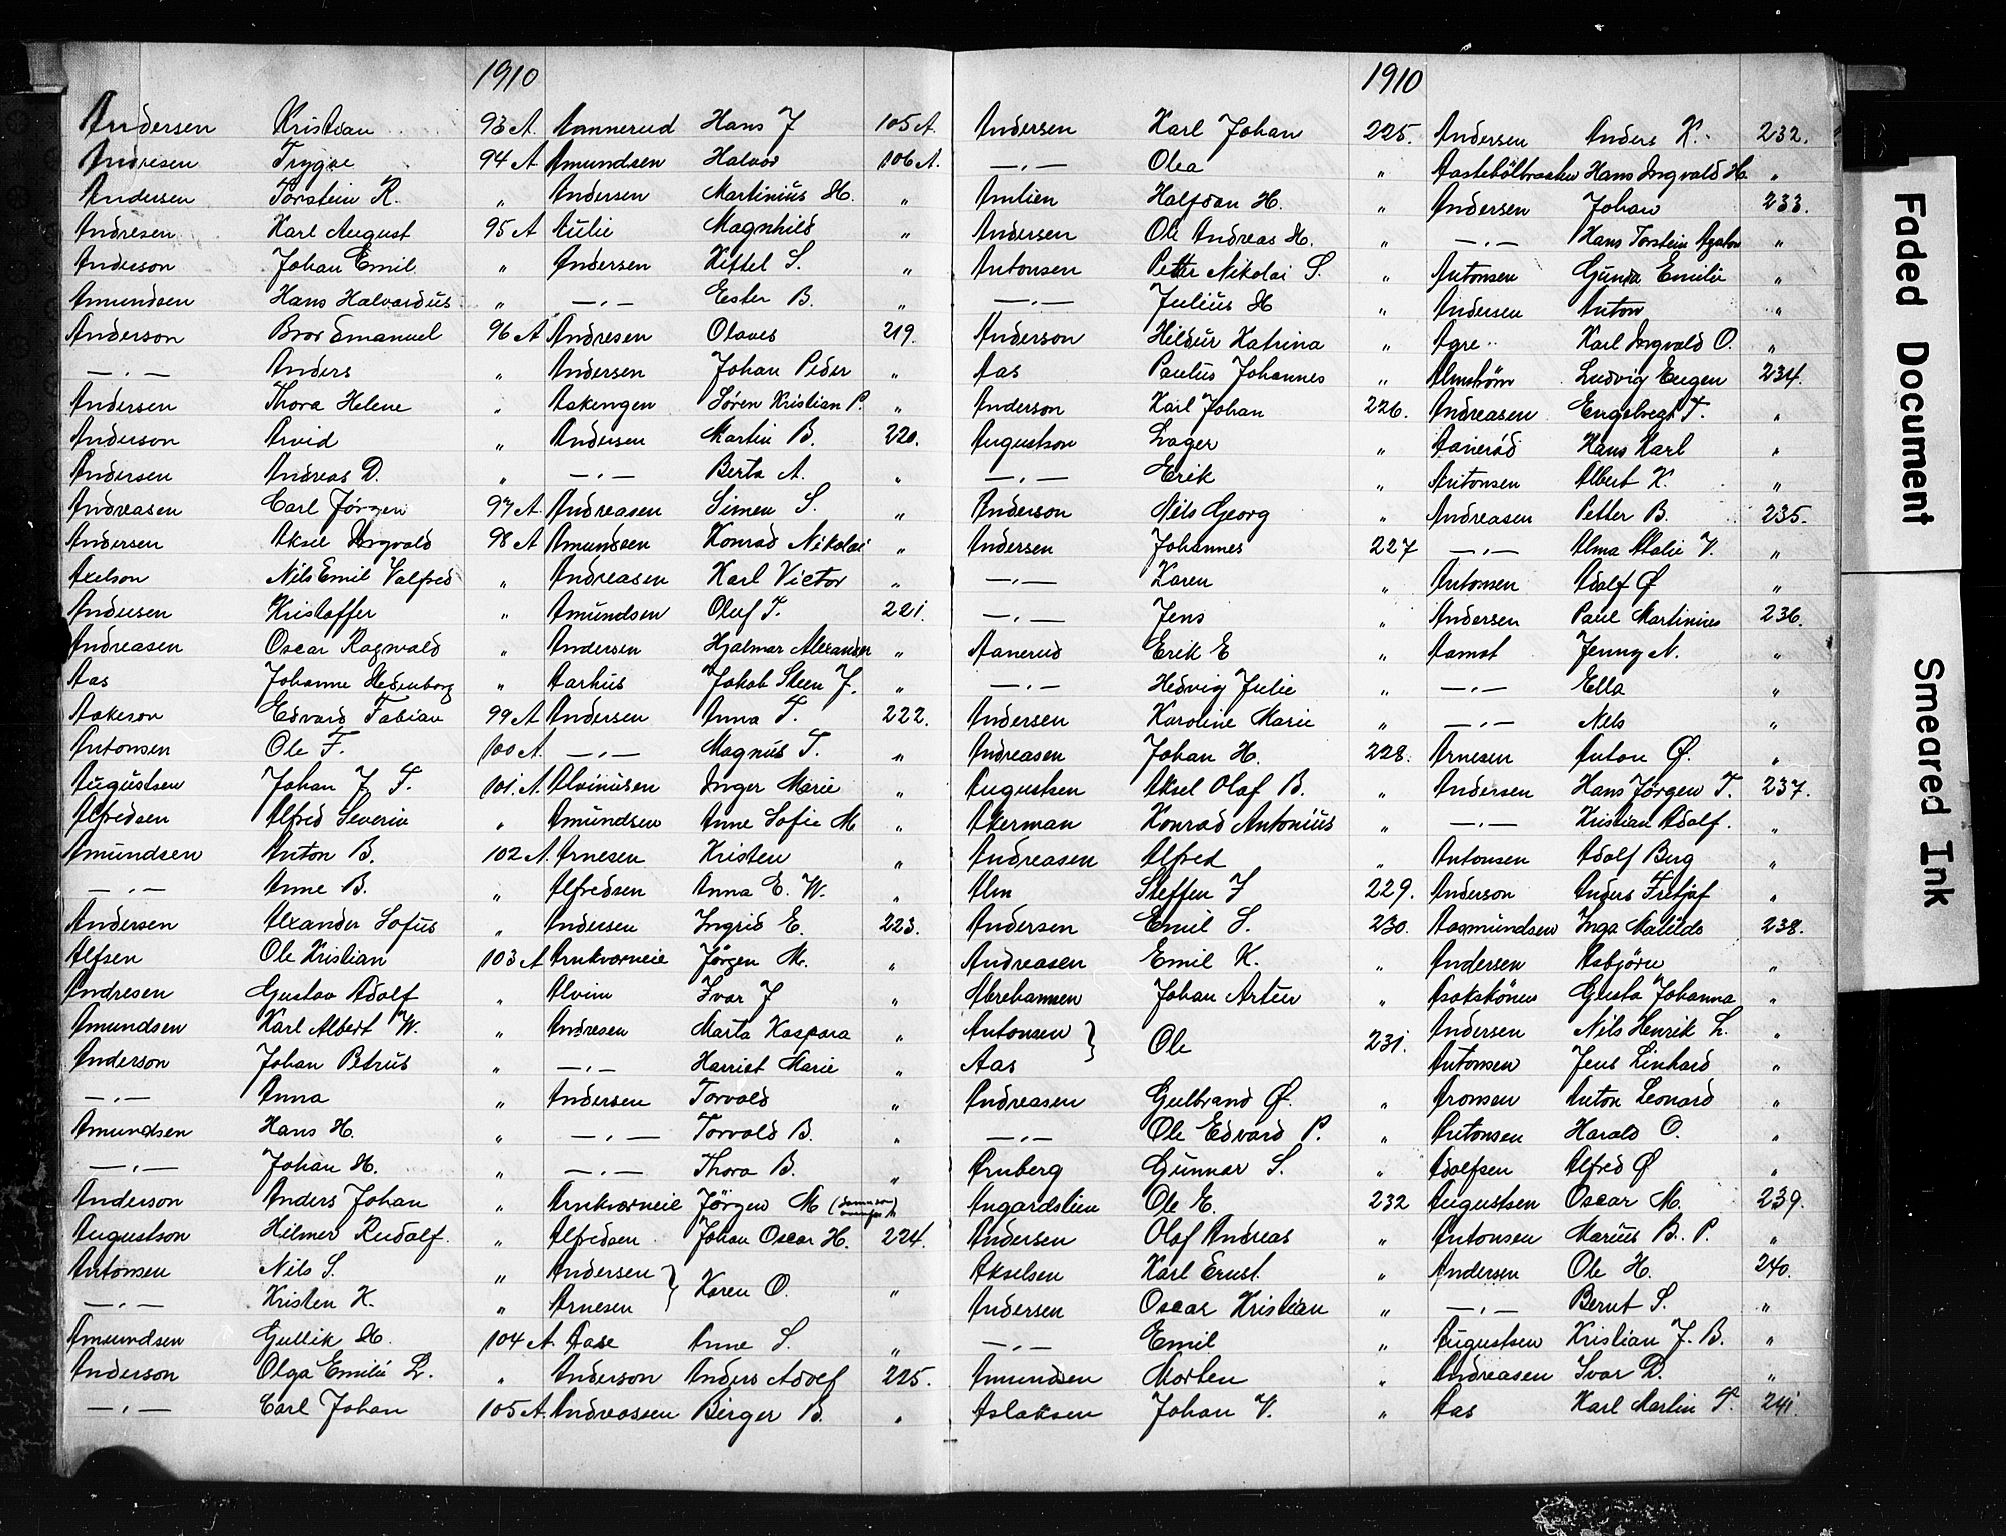 1910
Andersen Kristian 93 A
Andresen Trygve 94 A
Andersen Torstein R. "
Andresen Karl August 95 A
Anderson Johan Emil "
Amundsen Hans Halvardus "
Anderson Bror Emanuel 96 A
—"— Anders "
Andersen Thora Helene "
Anderson Arvid "
Andersen Andreas D. "
Andreasen Carl Jørgen 97 A
Andersen Aksel Ingvald 98 A
Axelson Nils Emil Valfred "
Andersen Kristoffer "
Andreasen Oscar Ragnvald "
Aas Johanne Hedenborg "
Aakeson Edvard Fabian 99 A
Antonsen Ole F. 100 A
Augustsen Johan J. F. 101 A
Alfredsen Alfred Severin "
Amundsen Anton B. 102 A
—"— Anne B. "
Andersen Alexander Sofus "
Alfsen Ole Kristian 103 A
Andresen Gustav Adolf "
Amundsen Karl Albert W. "
Anderson Johan Petrus "
—"— Anna "
Amundsen Hans H. "
—"— Johan H. "
Anderson Anders Johan "
Augustson Hilmer Rudolf "
Antonsen Nils S. "
—"— Kristen K. "
Amundsen Gullik H. 104 A
Anderson Olga Emilie L. "
—"— Carl Johan 105 A
Aannerud Hans J 105 A
Amundsen Halvor 106 A
Andersen Martinius H. "
Aulie Magnhild "
Andersen Kittel S. "
—"— Ester B. "
Andresen Olaves 219.
Andersen Johan Peder "
Askengen Søren Kristian P. "
Andersen Martin B. 220.
—"— Berta A. "
Andreasen Simen S. "
Amundsen Konrad Nikolai "
Andreasen Karl Victor "
Amundsen Oluf T. 221.
Andersen Hjalmar Alexander "
Aarhus Jakob Steen J. "
Andersen Anna T. 222.
—"— Magnus T. "
Alvinusen Inger Marie "
Amundsen Anne Sofie M "
Arnesen Kristen "
Alfredsen Anna E. W. "
Andersen Ingrid E. 223.
Arnkværneie Jørgen M. "
Alvim Ivar J "
Andresen Marta Kaspara "
—"— Harriet Marie "
Andersen Torvald "
—"— Torvald B. "
—"— Thora B. "
Arnkværneie Jørgen M
Alfredsen Johan Oscar H. 224.
Andersen } Karen O. "
Arnesen
Aase Anne S. "
Anderson Anders Adolf 225.
Andreassen Birger B. "
1910
Andersen Karl Johan 225.
—"— Olea "
Amlien Halfdan H. "
Andersen Ole Andreas H. "
Antonsen Petter Nikolai S. "
—"— Julius H "
Anderson Hildur Katrina "
Aas Paulus Johannes "
Anderson Karl Johan 226.
Augustson Ivager "
—"— Erik "
Anderson Nils Georg "
Andersen Johannes 227
—"— Karen "
—"— Jens "
Aanerud Erik E "
—"— Hedvig Julie "
Andersen Karoline Marie "
Andreasen Johan H. 228.
Augustsen Aksel Olaf B. "
Akerman Konrad Antonius "
Andreasen Alfred "
Alm Steffen J 229.
Andersen Emil S. 230.
Andreasen Emil K. "
Abrehamsen Johan Artur "
Antonsen } Ole 231.
Aas
Andreasen Gulbrand Ø. "
—"— Ole Edvard P. "
Arnberg Gunnar S. "
Angardslien Ole E. 232
Andersen Olaf Andreas "
Akselsen Karl Ernst "
Andersen Oscar Kristian "
—"— Emil "
Amundsen Morten "
Aslaksen Johan V. "
Andersen Anders K. 232.
Aastebölbraaten Hans Ingvald H "
Andersen Johan 233.
—"— Hans Torstein Agaton "
Antonsen Gunda Emilie "
Andersen Anton "
Agre Karl Ingvald O. "
Almström Ludvig Eugen 234.
Andreasen Engebregt T. "
Aanerød Hans Karl "
Antonsen Albert K. "
Andreasen Petter B. 235.
—"— Alma Atalie V. "
Antonsen Adolf Ø "
Andersen Paul Martinius 236.
Aamot Jenny N. "
—"— Ella "
—"— Nels "
Arnesen Anton Ø. "
Andersen Hans Jørgen T. 237.
—"— Kristian Adolf. "
Antonsen Adolf Berg "
Anderson Anders Fritjof "
Aasmundsen Inga Matilde 238.
Andersen Asbjørn "
Gusta Johanna "
Andersen Nils Henrik L. "
Antonsen Jens Linhard "
Aronsen Anton Leonard "
Antonsen Harald O. "
Adolfsen Alfred Ø "
Augustsen Oscar M. 239.
Antonsen Marius B. P. "
Andersen Ole H. 240.
—"— Bernt S. "
Augustsen Kristian J. B. "
Andreasen Ivar D. "
Aas Karl Martin T. 241.
B
Faded Document
Smeared Ink